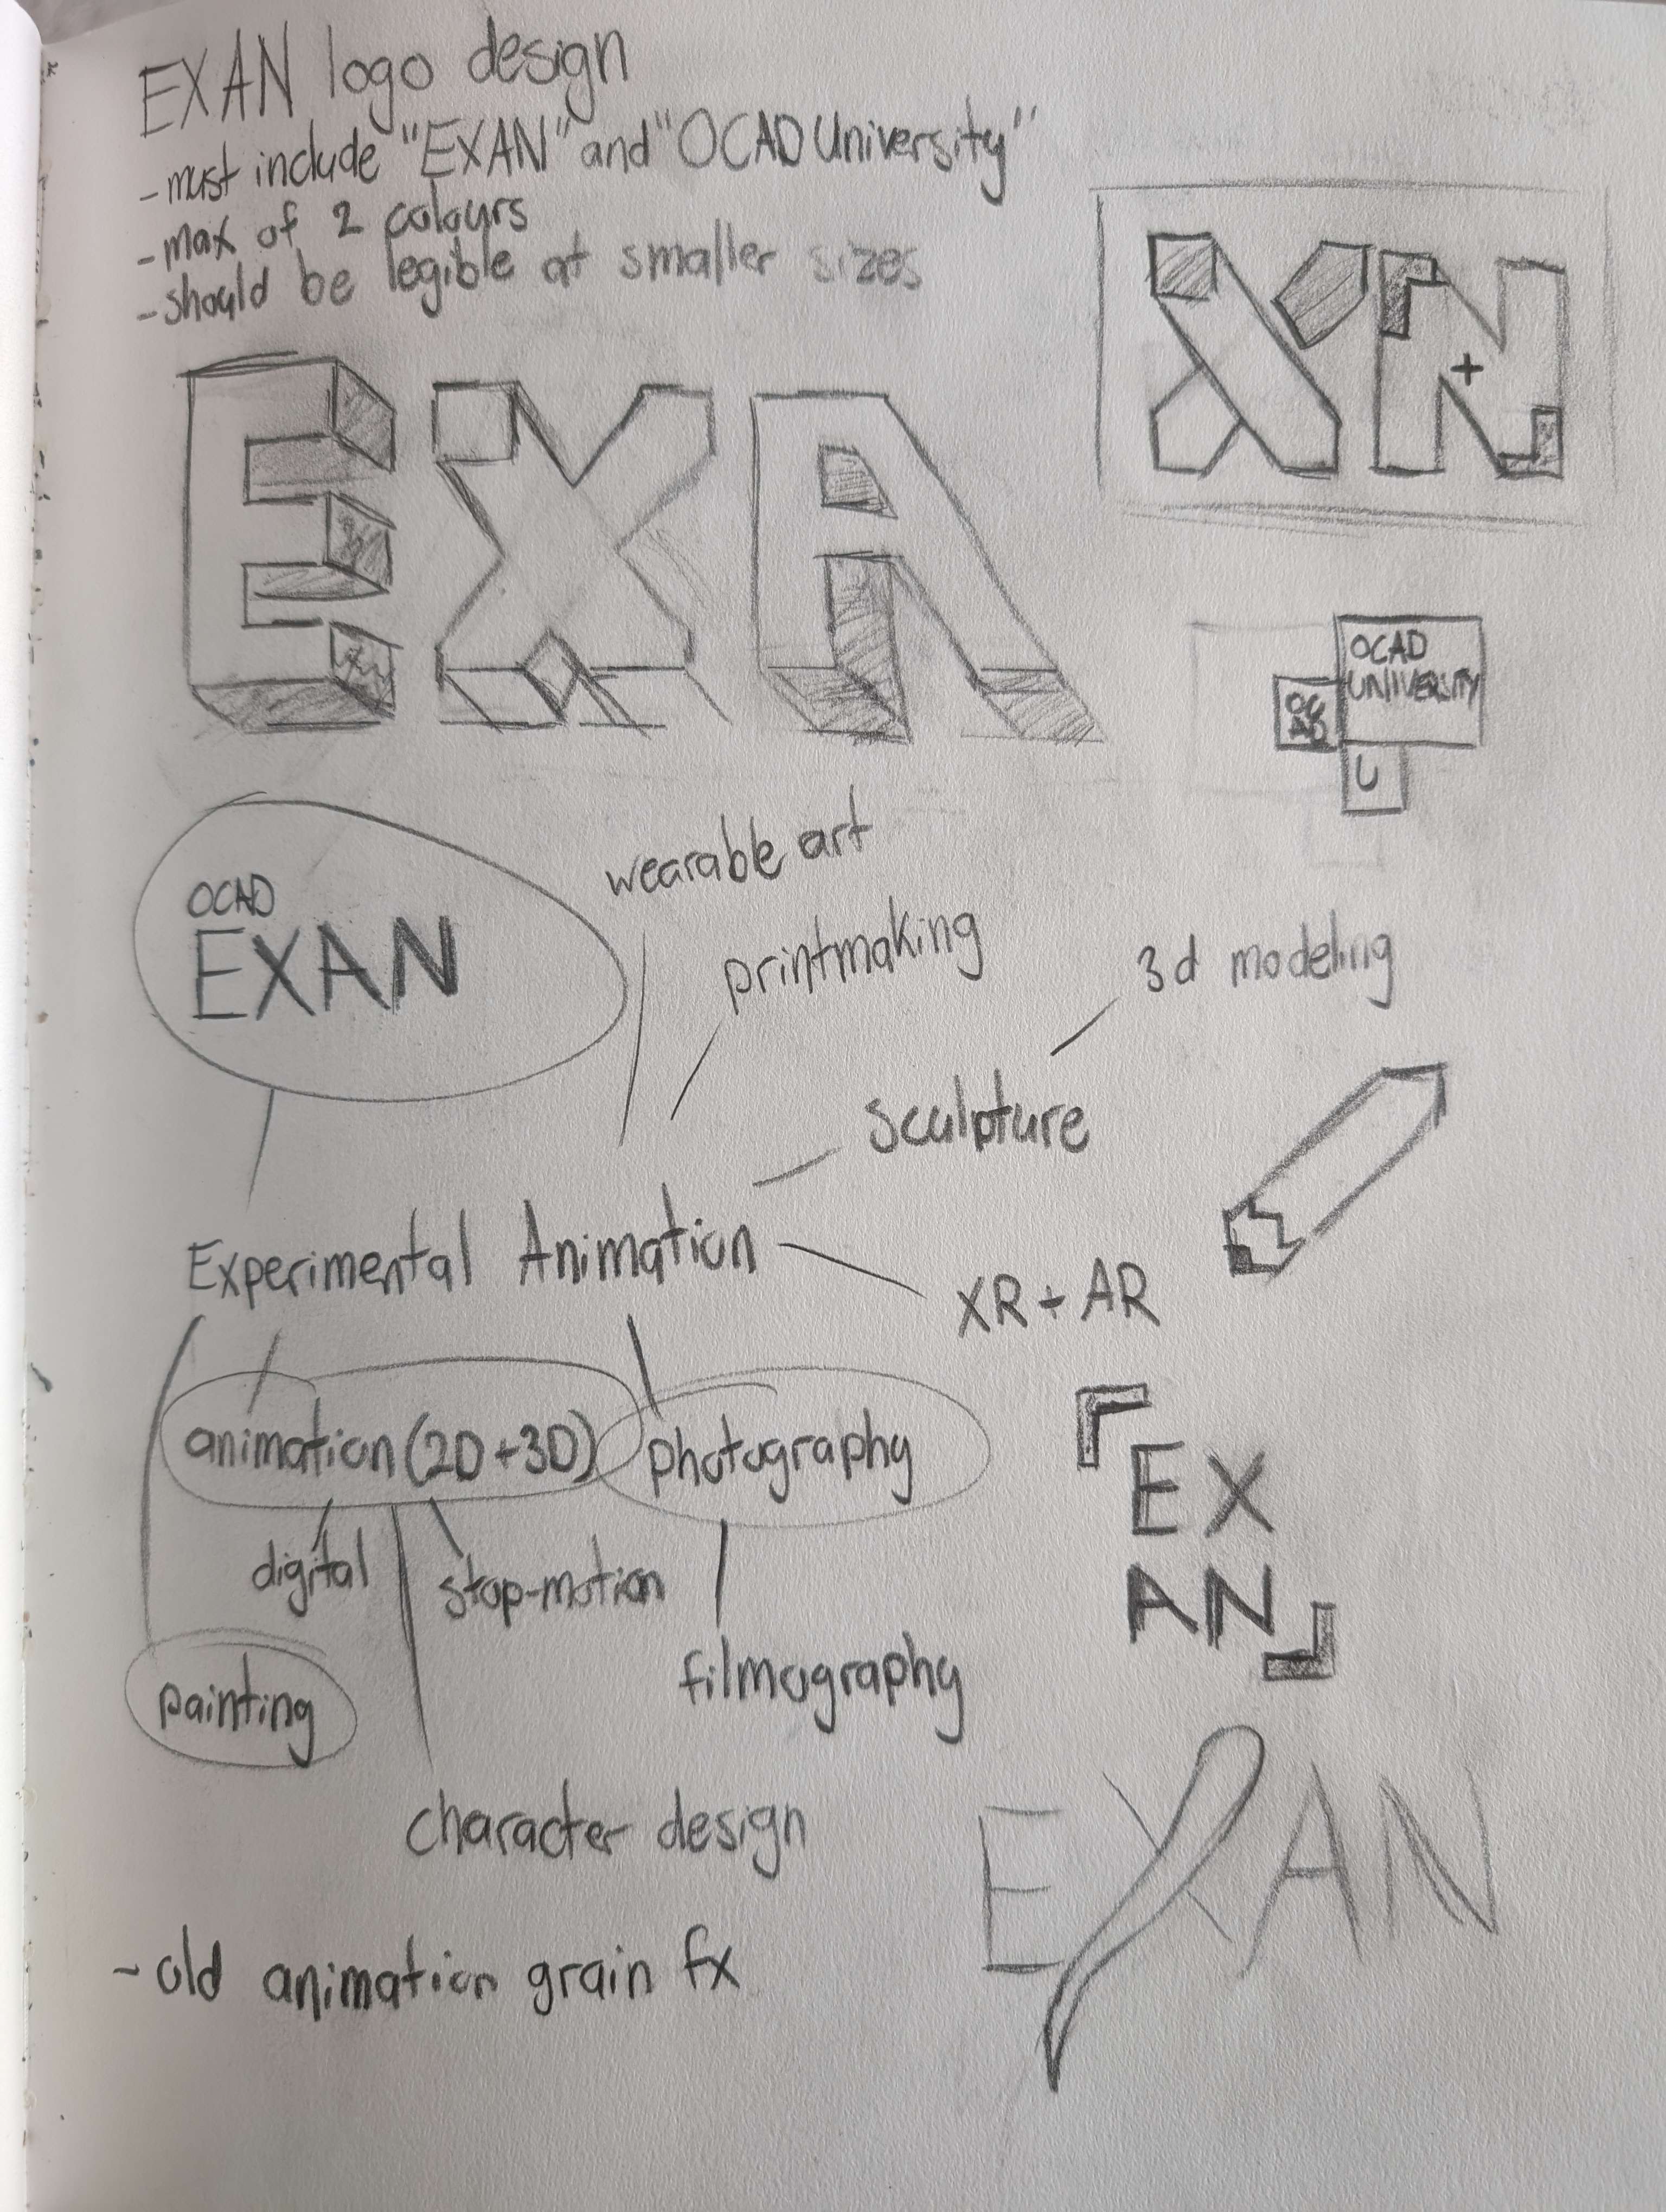 EXAN logo design
- must include "EXAN" and "OCAD University"
- max of 2 colours
- should be legible at smaller sizes
EXA
XN
+
OCAD
UNIVERSITY
OC
AD
U
OCAD
EXAN
wearable art
printmaking
3d modeling
sculpture
Experimental Animation
XR + AR
animation (2D + 3D)
photography
digital
stop-motion
painting
filmography
character design
EX
AN
EXAN
- old animation grain fx